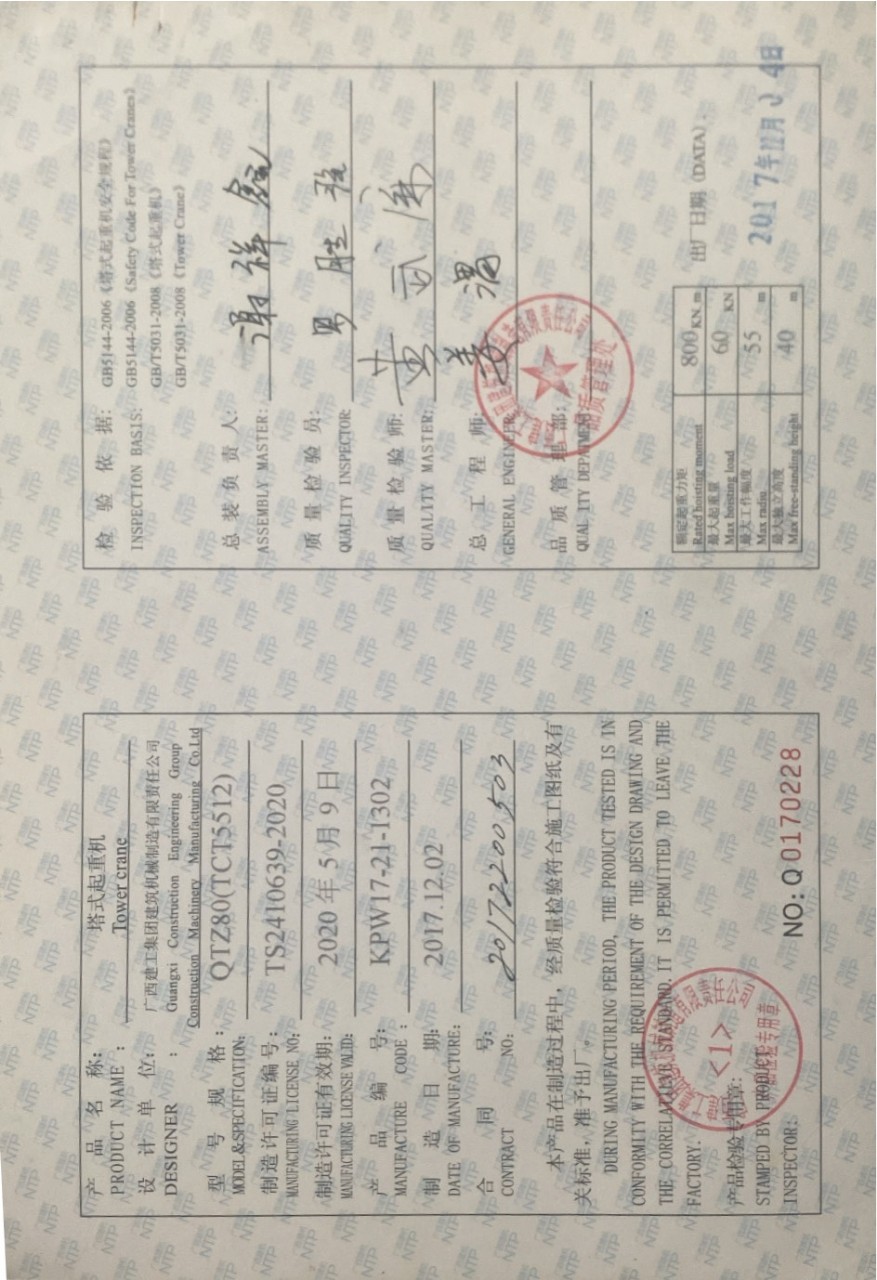 产品名称: 塔式起重机
PRODUCT NAME : Tower crane
设计单位: 广西建工集团建筑机械制造有限责任公司
DESIGNER : Guangxi Construction Engineering Group
Construction Machinery Manufacturing Co.Ltd
型号规格: QTZ80(TCT5512)
MODEL&SPECIFICATION:
制造许可证编号: TS2410639-2020
MANUFACTURING LICENSE NO:
制造许可证有效期: 2020年5月9日
MANUFACTURING LICENSE VALID:
产品编号: KPW17-21-1302
MANUFACTURE CODE :
制造日期: 2017.12.02
DATE OF MANUFACTURE:
合同号: 20172200503
CONTRACT NO:
本产品在制造过程中，经质量检验符合施工图纸及有
关标准，准予出厂。
DURING MANUFACTURING PERIOD, THE PRODUCT TESTED IS IN
CONFORMITY WITH THE REQUIREMENT OF THE DESIGN DRAWING AND
THE CORRELATIVE STANDARD,IT IS PERMITTED TO LEAVE THE
FACTORY.
产品检验专用章:
STAMPED BY PRODUCT
INSPECTOR:
<1>
NO: Q 0170228
检验依据: GB5144-2006《塔式起重机安全规程》
INSPECTION BASIS: GB5144-2006《Safety Code For Tower Cranes》
GB/T5031-2008《塔式起重机》
GB/T5031-2008《Tower Crane》
总装负责人:
ASSEMBLY MASTER:
质量检验员:
QUALITY INSPECTOR:
质量检验师:
QUALITY MASTER:
总工程师:
GENERAL ENGINEER:
品质管理部:
QUALITY DEPARTMENT
品质管理处
额定起重力矩 800 KN.m
Rated hoisting moment
最大起重量 60 KN
Max hoisting load
最大工作幅度 55 m
Max radiu
最大独立高度 40 m
Max free-standing height
出厂日期 (DATA):
2017年12月04日